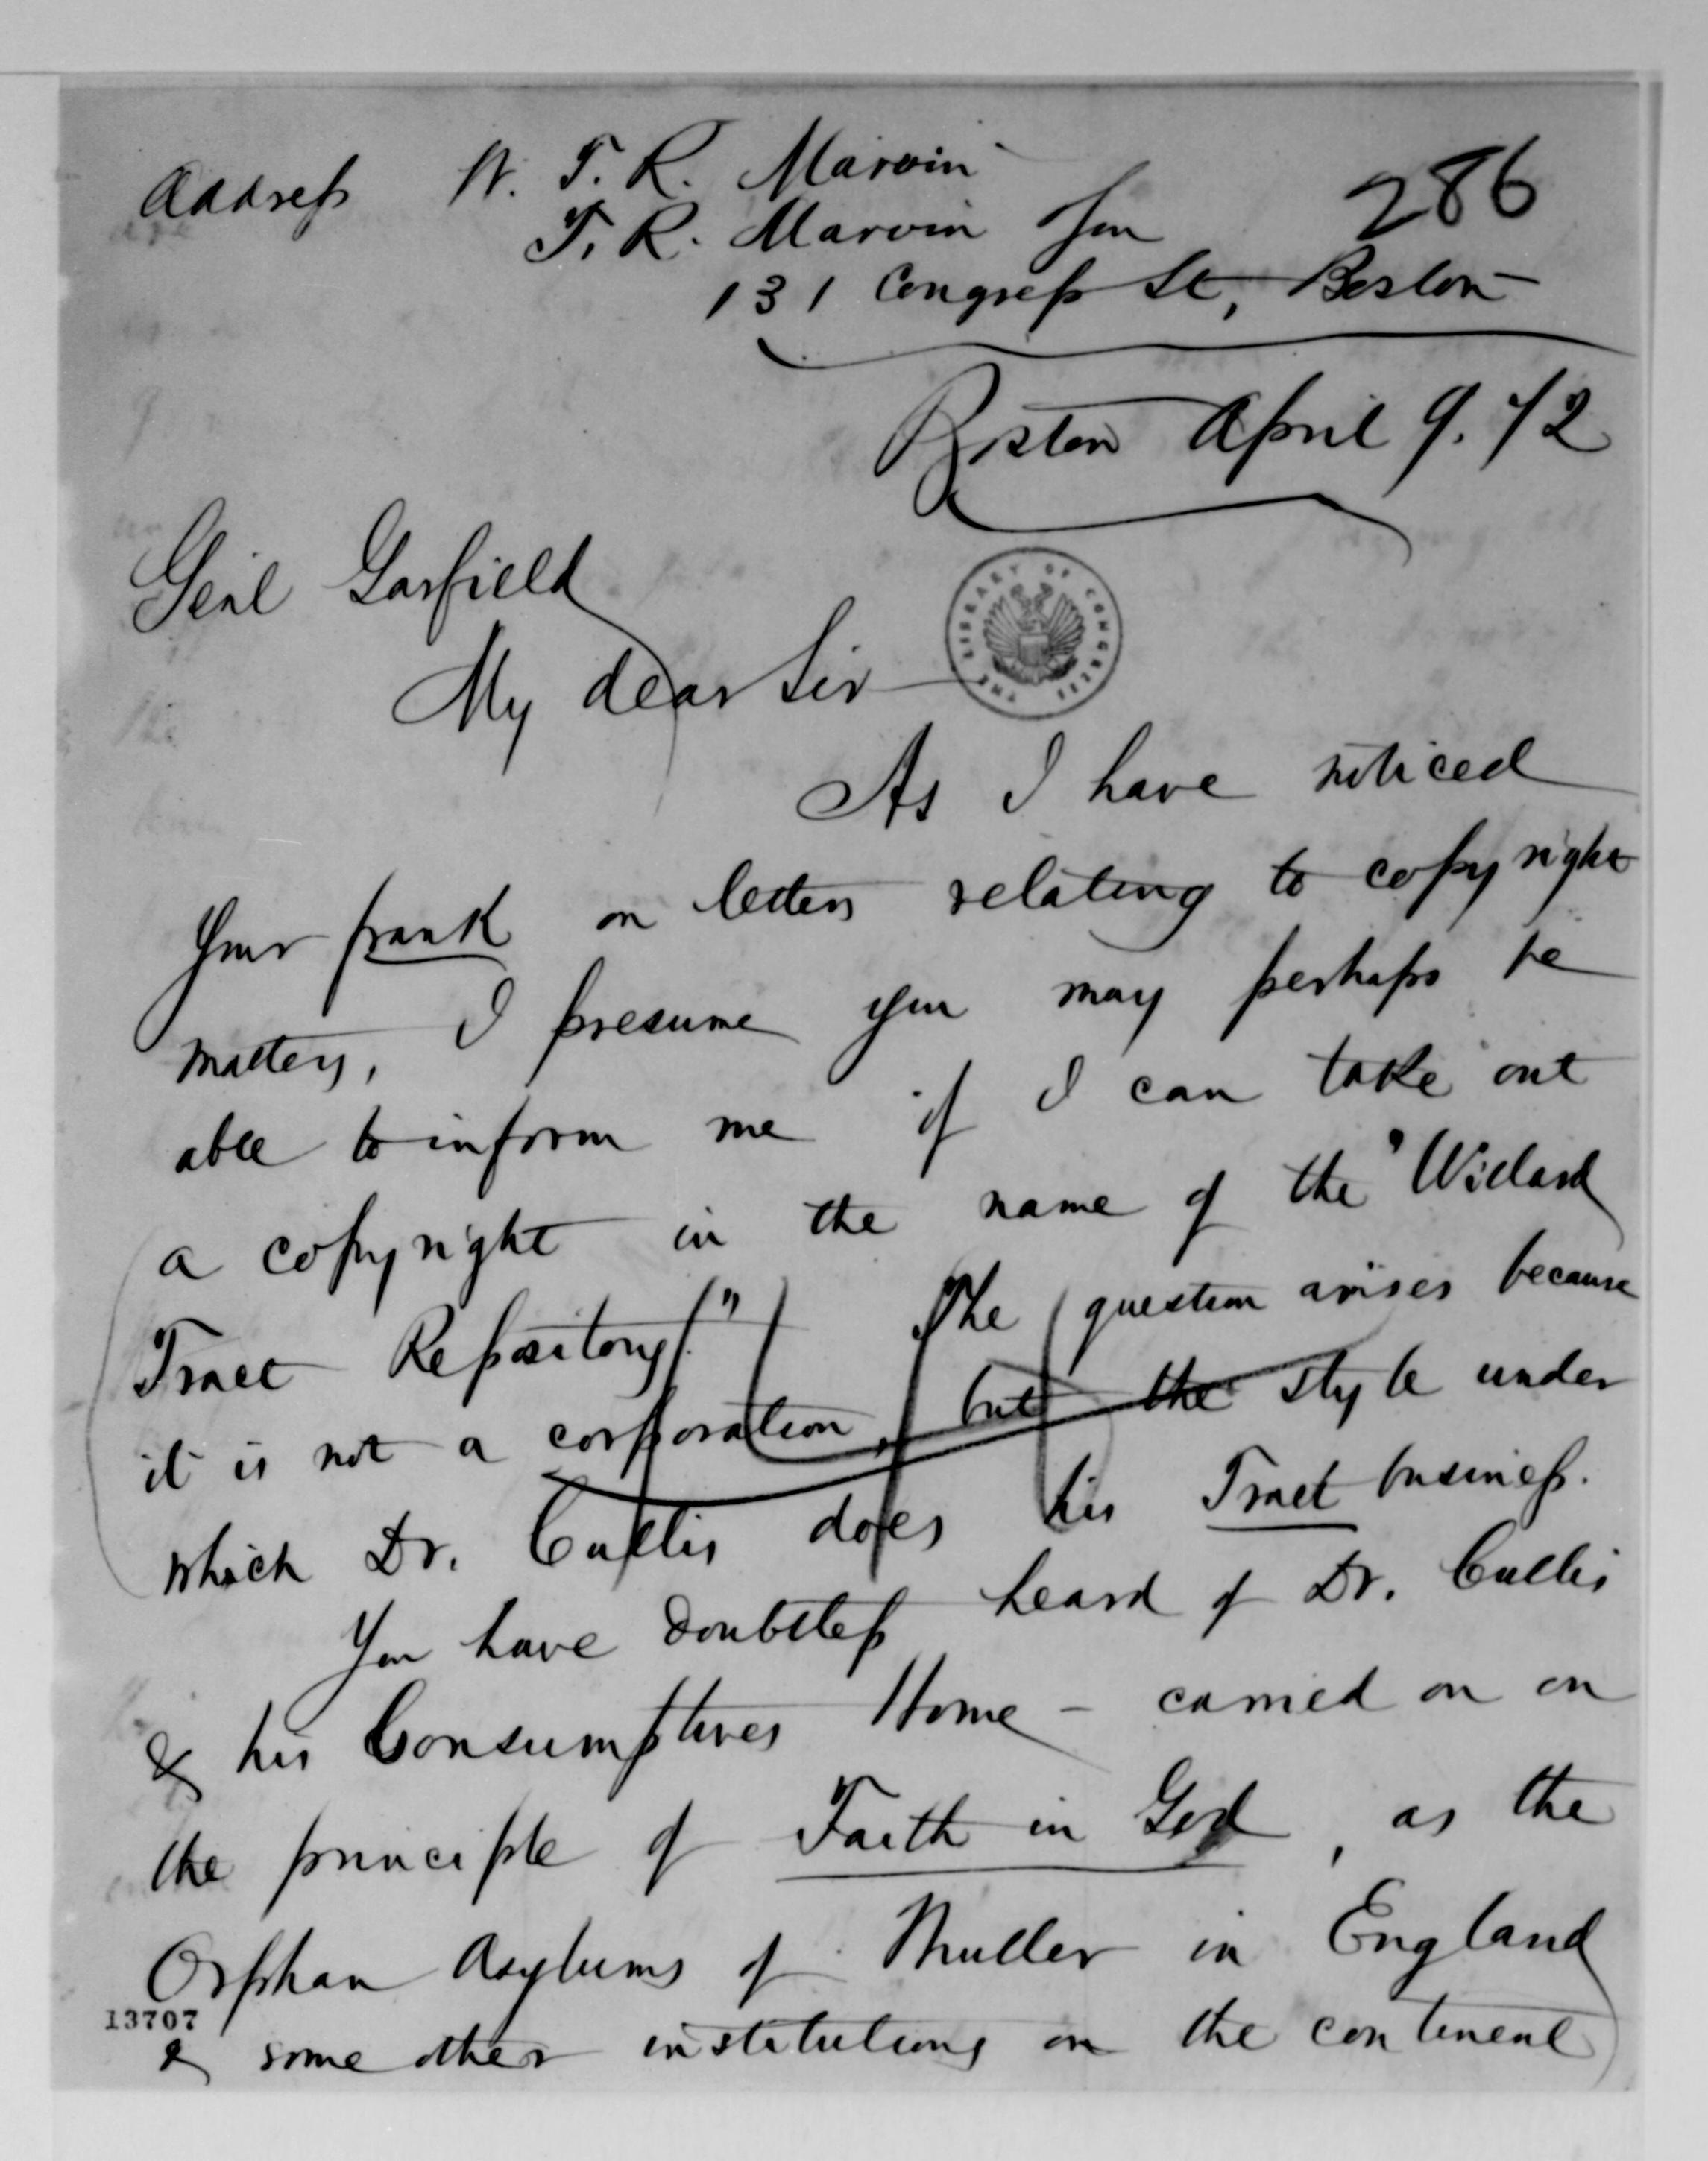 Address W. T. R. Marvin
T. R. Marvin & Son
286
131 Congress St, Boston
Boston April 9. 72
Genl Garfield
My dear Sir
THE LIBRARY OF CONGRESS
As I have noticed
your frank on letters relating to copyright
matters, I presume you may perhaps be
able to inform me if I can take out
a copyright in the name of the "Willard
Tract Repository." The question arises because
it is not a corporation, but the style under
which Dr. Cullis does his Tract business.
You have doubtless heard of Dr. Cullis
& his Consumptives Home - carried on on
the principle of Faith in God, as the
Orphan Asylums of Muller in England
13707
& some other institutions on the continent